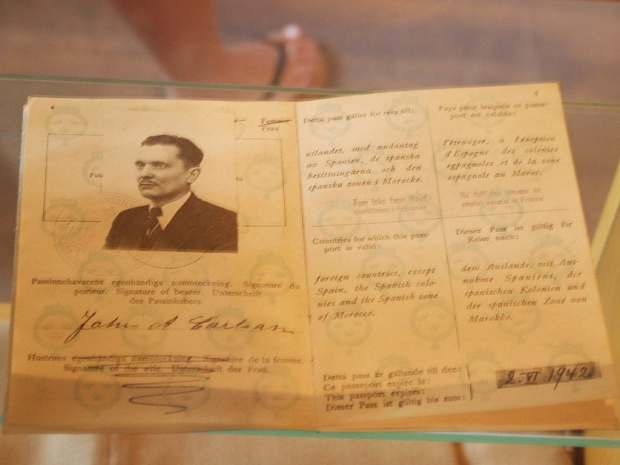 4
Femme
Frau
Passinnehavarens egenhändiga namnteckning. Signature du
porteur. Signature of bearer. Unterschrift
des Passinhabers.
John A Carlson
Hustruns egenhändiga namnteckning. Signature de la femme.
Signature of the wife. Unterschrift der Frau.
Detta pass gäller för resa till:
utlandet, med undantag
av Spanien, de spanska
besittningarna och den
spanska zonen i Marocko.
Pays pour lesquels ce passe-
port est valable:
l'étranger, à l'exception
d'Espagne des colonies
espagnoles et de la zone
espagnole au Maroc.
Countries for which this pass-
port is valid:
foreign countries, except
Spain, the Spanish colo-
nies and the Spanish zone
of Morocco.
Dieser Pass ist gültig für
Reise nach:
dem Auslande, mit Aus-
nahme Spaniens, der
spanischen Kolonien und
der spanischen Zone von
Marokko.
Detta pass är gällande till den:
Ce passeport expire le:
This passport expires:
Dieser Pass ist gültig bis zum:
2. VI 1942